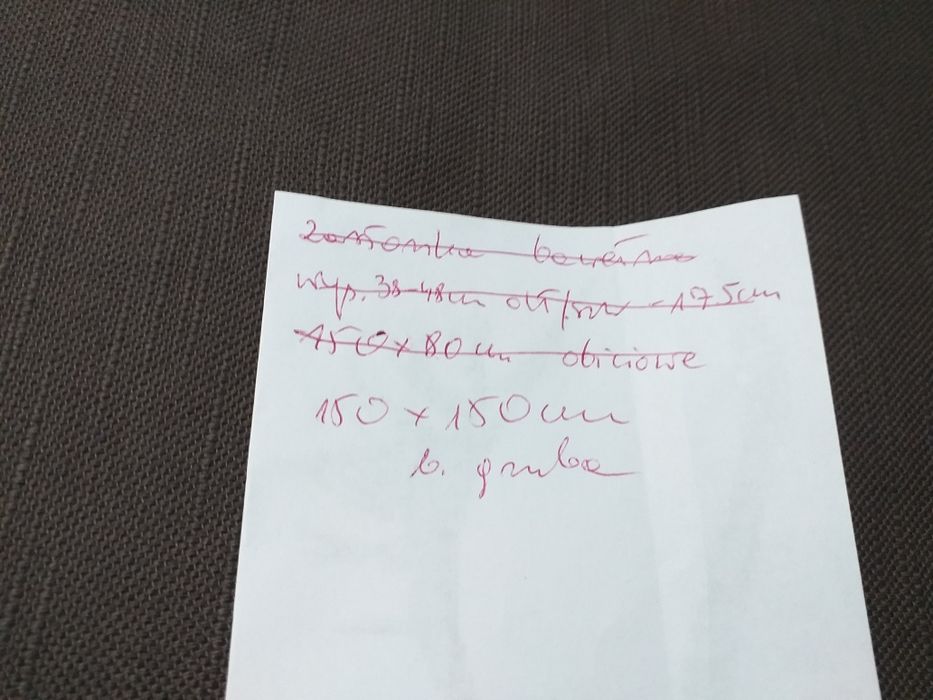 zasłonka bawełna
wys. 38-48cm - 175cm
150x80cm obiciowe
150 x 150cm
b. gruba